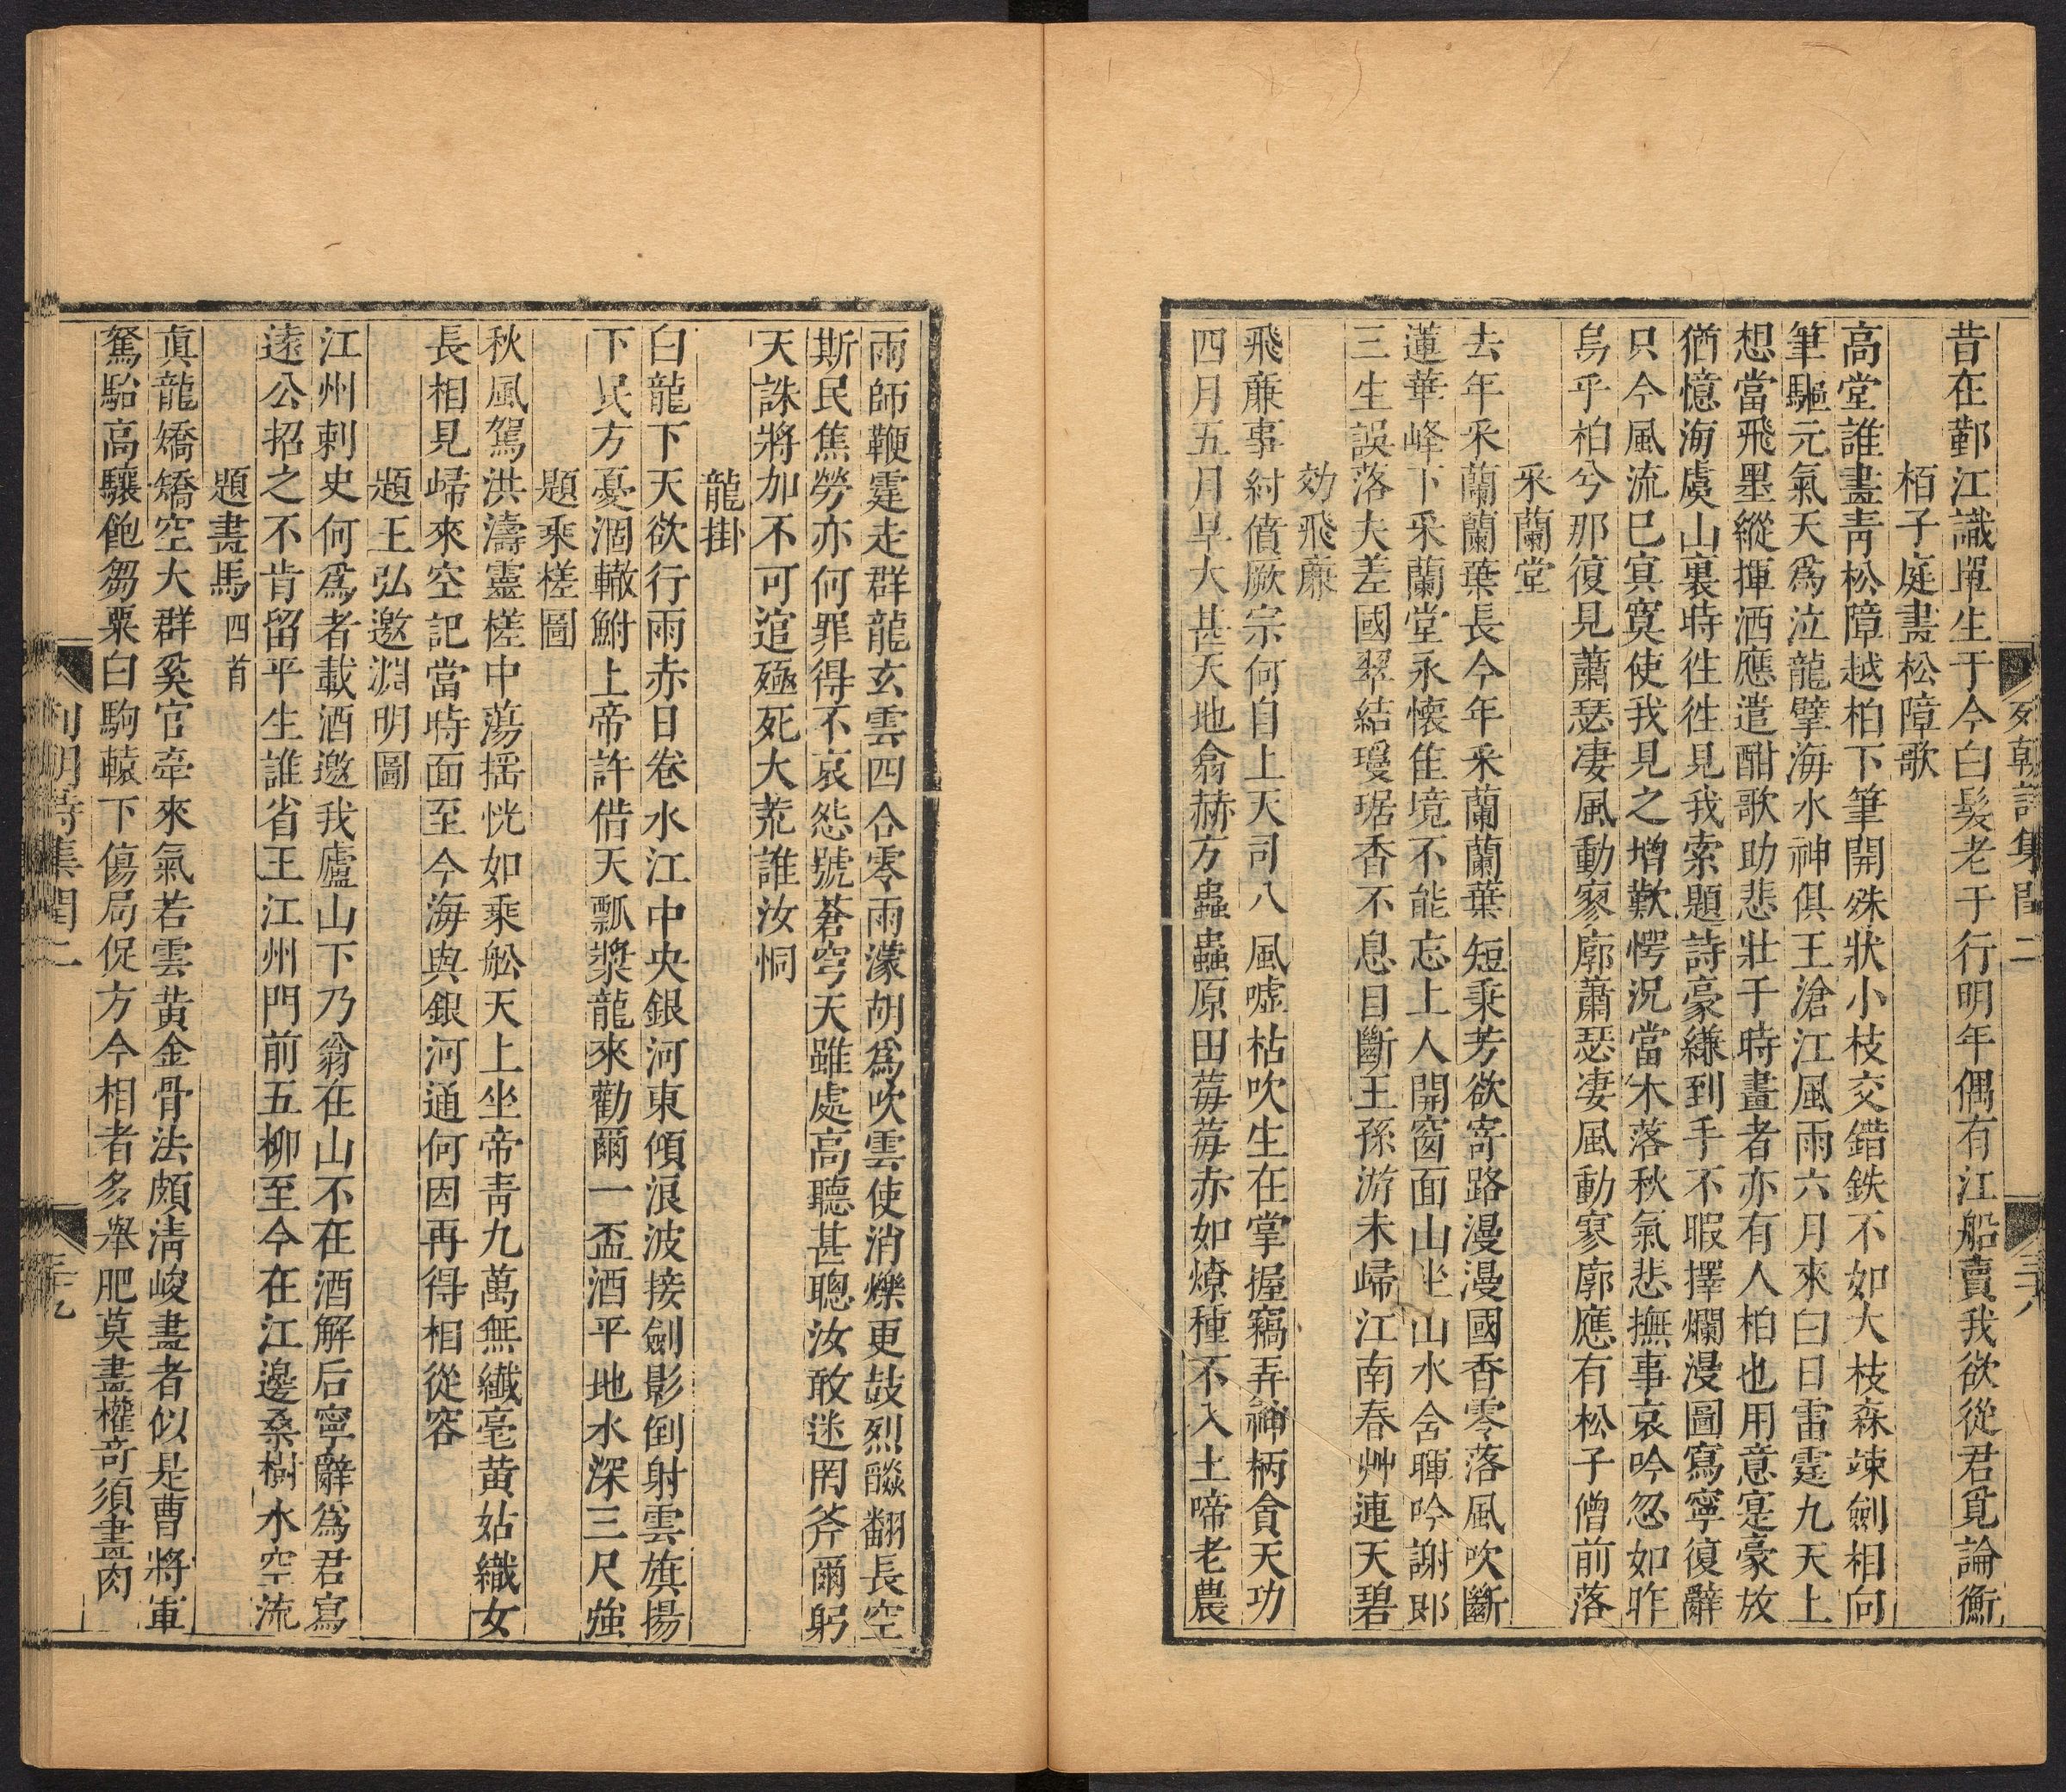 列朝詩集閏二
三十八
昔在鄞江識單生于今白髮老于行明年偶有江船賣我欲從君覓論衡
栢子庭畫松障歌
高堂誰畫青松障越柏下筆開殊狀小枝交錯鉄不如大枝森竦劍相向
筆驅元氣天爲泣龍擘海水神俱王滄江風雨六月來白日雷霆九天上
想當飛墨縱揮洒應遣酣歌助悲壯于時畫者亦有人柏也用意寔豪放
猶憶海虞山裏時徃徃見我索題詩豪縑到手不暇擇爛漫圖寫寧復辭
只今風流已寘寞使我見之增歎愕況當木落秋氣悲撫事哀吟忽如昨
烏乎柏兮那復見蕭瑟凄風動寥廓蕭瑟凄風動寥廓應有松子僧前落
采蘭堂
去年采蘭蘭葉長今年采蘭蘭葉短乗芳欲寄路漫漫國香零落風吹斷
蓮華峰下采蘭堂永懷隹境不能忘上人開窗面山坐山水含暉吟謝郎
三生誤落夫差國翠結瓊琚香不息目斷王孫游未歸江南春艸連天碧
効飛廉
飛廉事紂僨厥宗何自上天司八風噓枯吹生在掌握竊弄神柄貪天功
四月五月旱大甚天地翕赫方蟲蟲原田莓莓赤如燎種不入土啼老農
雨師鞭霆走群龍玄雲四合零雨濛胡爲吹雲使消爍更鼓烈燄翻長空
斯民焦勞亦何罪得不哀怨號蒼穹天雖處高聽甚聰汝敢迷罔斧爾躬
天誅將加不可逭殛死大荒誰汝恫
龍掛
白龍下天欲行雨赤日卷水江中央銀河東傾浪波接劍影倒射雲旗揚
下民方憂涸轍鮒上帝許借天瓢漿龍來勸爾一盃酒平地水深三尺強
題乘槎圖
秋風駕洪濤靈槎中蕩揺恍如乘舩天上坐帝青九萬無纖毫黃姑織女
長相見歸來空記當時面至今海與銀河通何因再得相從容
題王弘邀淵明圖
江州刺史何爲者載酒邀我廬山下乃翁在山不在酒解后寧辭爲君寫
遠公招之不肯留平生誰省王江州門前五柳至今在江邊桑樹水空流
題畫馬四首
眞龍嬌矯空大群奚官牽來氣若雲黃金骨法頗清峻畫者似是曹將軍
駑駘高驤飽芻粟白駒轅下傷局促方今相者多舉肥莫盡權竒須畫肉
列朝詩集閏二
三十九